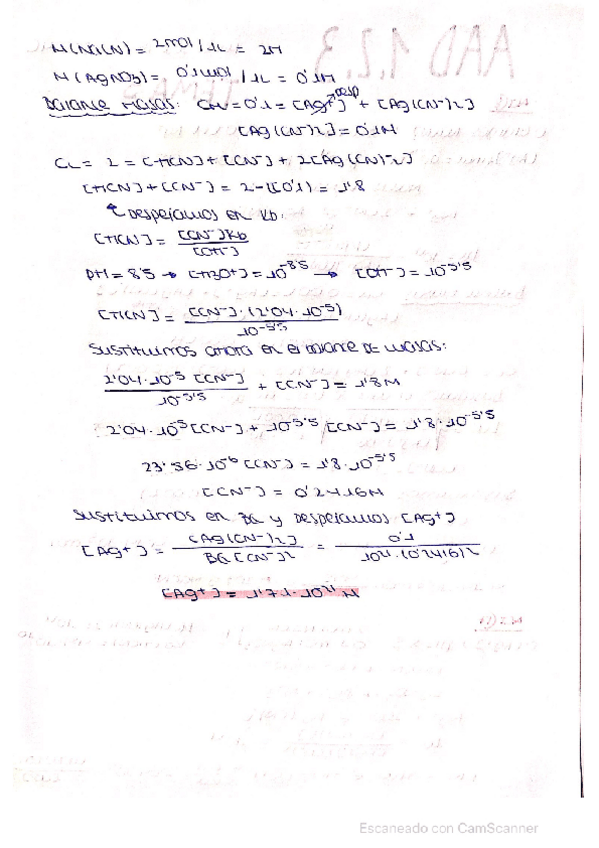 M(NaCN) = 2mol/1L = 2M
M(AgNO3) = 0'1mol/1L = 0'1M
Balance masas: CM = 0'1 = [Ag+] desp + [Ag(CN-)2]
[Ag(CN-)2] = 0'1M
CL = 2 = [HCN] + [CN-] + 2[Ag(CN)-2]
[HCN] + [CN-] = 2-(2·0'1) = 1'8
↑ Despejamos en Kb:
[HCN] = [CN-]Kb / [OH-]
pH = 8'5 → [H3O+] = 10^-8'5 → [OH-] = 10^-5'5
[HCN] = [CN-]·(2'04·10^-5) / 10^-5'5
Sustituimos ahora en el balance de masas:
2'04·10^-5 [CN-] / 10^-5'5 + [CN-] = 1'8M
2'04·10^-5 [CN-] + 10^-5'5 [CN-] = 1'8·10^-5'5
23'56·10^-6 [CN-] = 1'8·10^-5'5
[CN-] = 0'2416M
Sustituimos en BG y despejamos [Ag+]
[Ag+] = [Ag(CN-)2] / BG[CN-]2 = 0'1 / 10^21·(0'2416)2
[Ag+] = 1'71·10^21 M
Escaneado con CamScanner